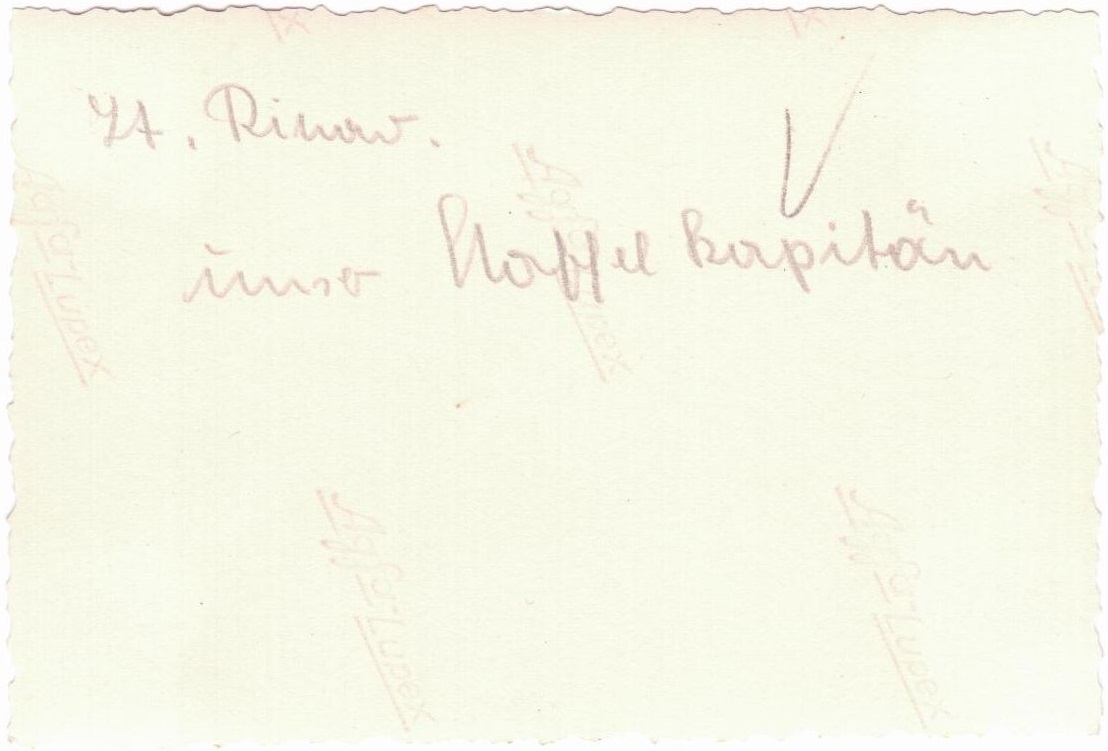 Lt. Rinow.
unser Staffelkapitän
Agfa-Lupex
Agfa-Lupex
Agfa-Lupex
Agfa-Lupex